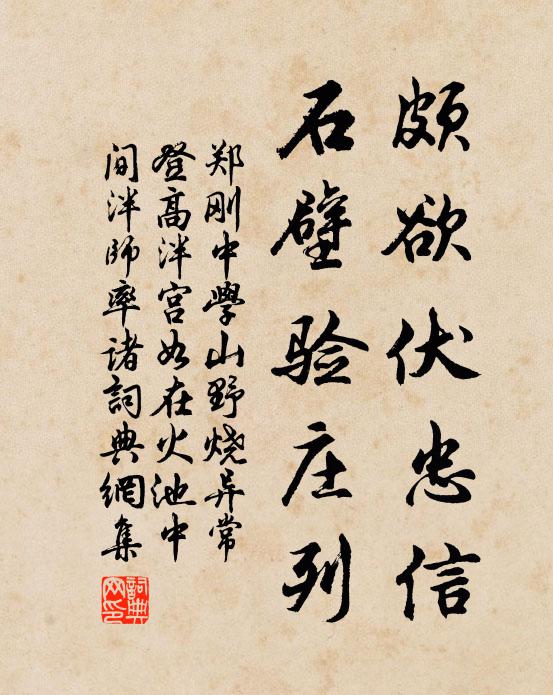 颇欲伏忠信
石壁验庄列
郑刚中學山野烧异常
登高泮宫如在火池中
间泮师率诸詞典網集
詞典網印